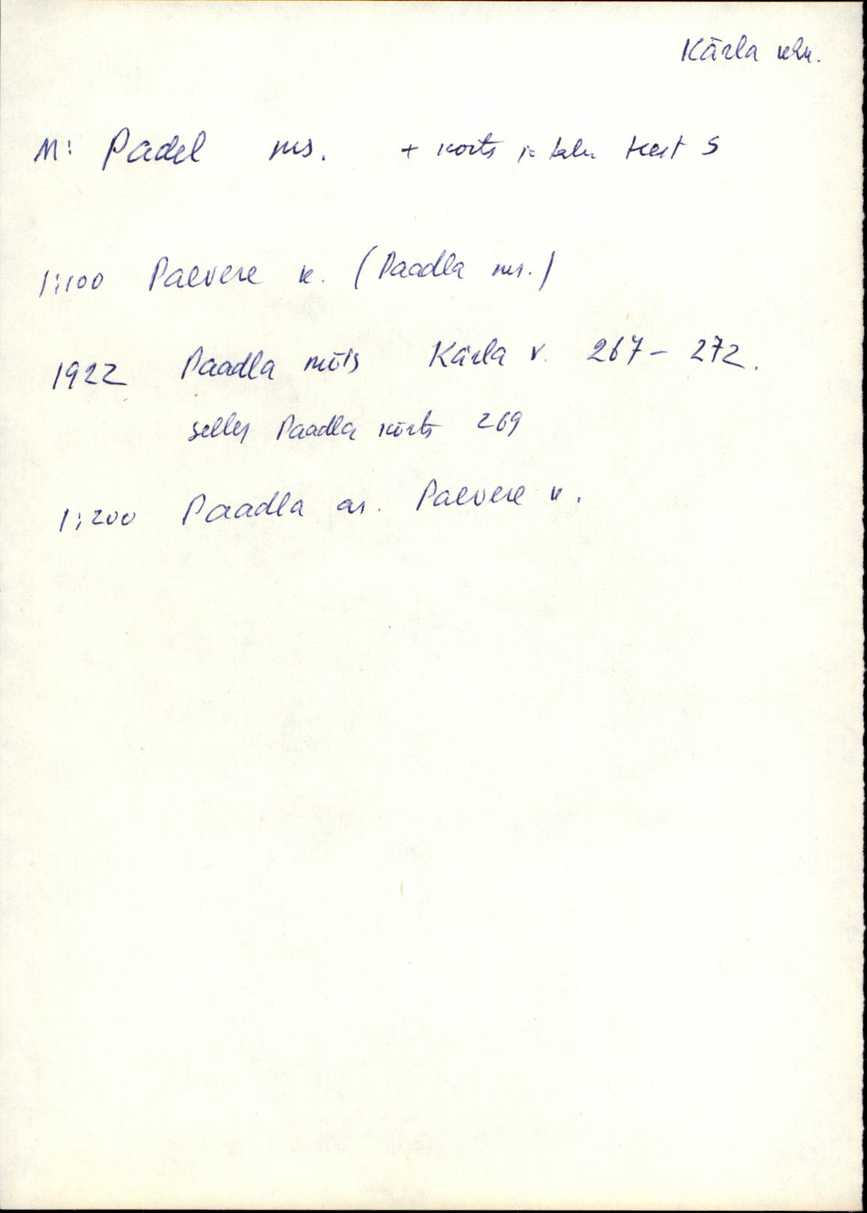 Kärla khk.
M: Padel ms. + kõrts ja talu
1:100 Paevere k. (Paadla ms.)
1922 Paadla mõis Kärla v. 267–272.
selles Paadla kõrts 269
1:200 Paadla as. Paevere k.